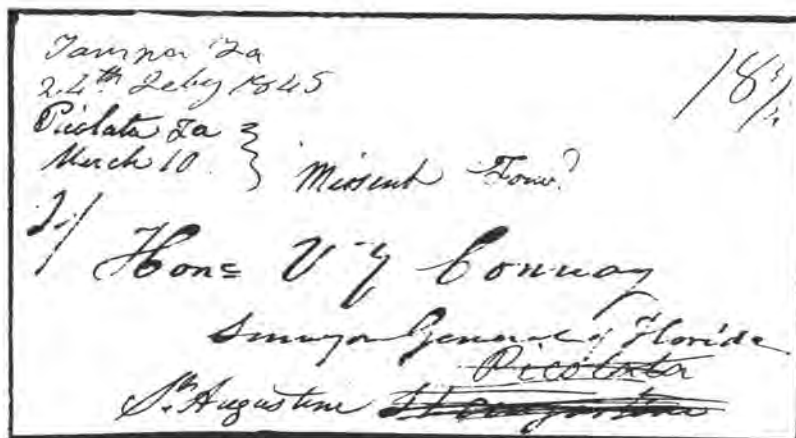 Tampa Fa
24th Feby 1845
18 3/4
Picolata Fa
March 10
Missent Forwd
Hone V Y Conway
Surveyor General of Florida
Picolata
St. Augustine St Augustine